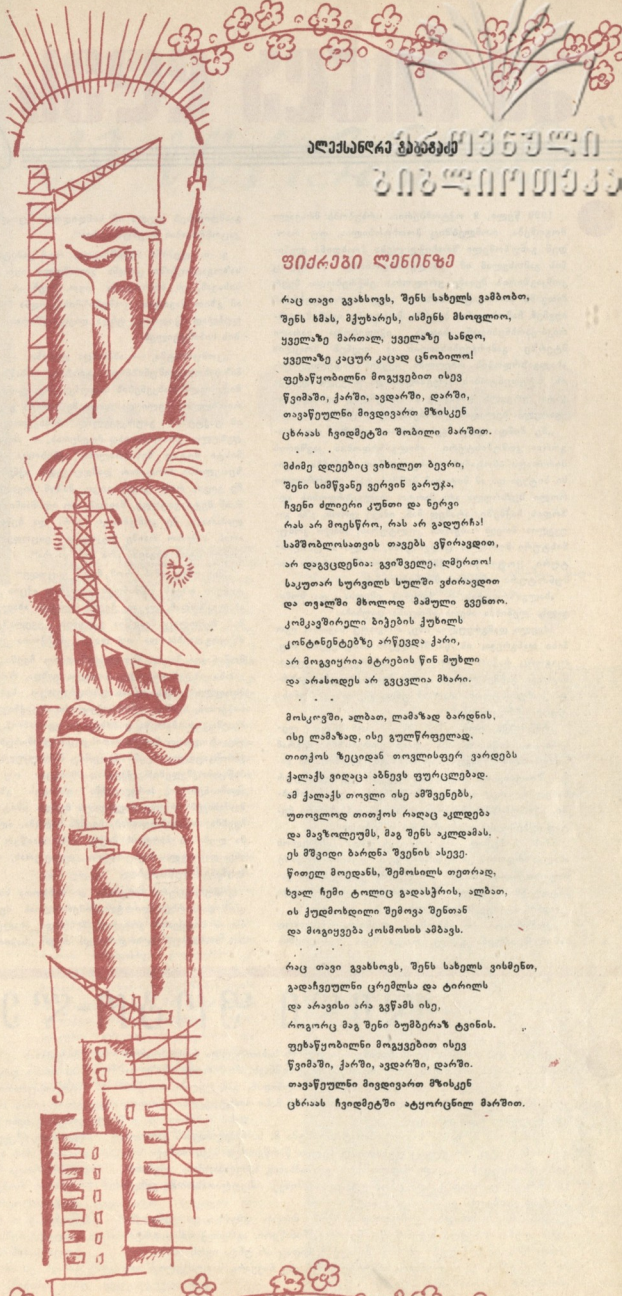 ალექსანდრე გაბაგაძე
ეროვნული
ბიბლიოთეკა
ფიქრები ლენინზე
რაც თავი გვახსოვს, შენს სახელს ვამბობთ,
შენს ხმას, მქუხარეს, ისმენს მსოფლიო,
ყველაზე მართალ, ყველაზე სანდო,
ყველაზე კაცურ კაცად ცნობილო!
ფეხაწყობილნი მოგყვებით ისევ
წვიმაში, ქარში, ავდარში, დარში,
თავაწეულნი მივდივართ მზისკენ
ცხრაას ჩვიდმეტში შობილი მარშით.
. . .
მძიმე დღეებიც ვიხილეთ ბევრი,
შენი სიმწვანე ვერვინ გარუჯა,
ჩვენი ძლიერი კუნთი და ნერვი
რას არ მოესწრო, რას არ გადურჩა!
სამშობლოსათვის თავებს ვწირავდით,
არ დაგვცდენია: გვიშველე, ღმერთო!
საკუთარ სურვილს სულში ვძირავდით
და თვალში მხოლოდ მამული გვენთო.
კომკავშირელი ბიჭების ქუხილს
კონტინენტებზე არწევდა ქარი,
არ მოგვიყრია მტრების წინ მუხლი
და არასოდეს არ გვცვლია მხარი.
. . .
მოსკოვში, ალბათ, ლამაზად ბარდნის,
ისე ლამაზად, ისე გულწრფელად.
თითქოს ზეციდან თოვლისფერ ვარდებს
ქალაქს ვიღაცა აბნევს ფურცლებად.
ამ ქალაქს თოვლი ისე ამშვენებს,
უთოვლოდ თითქოს რაღაც აკლდება
და მავზოლეუმს, მაგ შენს აკლდამას,
ეს მშვიდი ბარდნა შვენის ასევე.
წითელ მოედანს, შემოსილს თეთრად,
ხვალ ჩემი ტოლიც გადასჭრის, ალბათ,
ის ქუდმოხდილი შემოვა შენთან
და მოგიყვება კოსმოსის ამბავს.
. . . .
რაც თავი გვახსოვს, შენს სახელს ვისმენთ,
გადაჩვეულნი ცრემლსა და ტირილს
და არავისი არა გვწამს ისე,
როგორც მაგ შენი ბუმბერაზ ტვინის.
ფეხაწყობილნი მოგყვებით ისევ
წვიმაში, ქარში, ავდარში, დარში.
თავაწეულნი მივდივართ მზისკენ
ცხრაას ჩვიდმეტში ატყორცნილ მარშით.